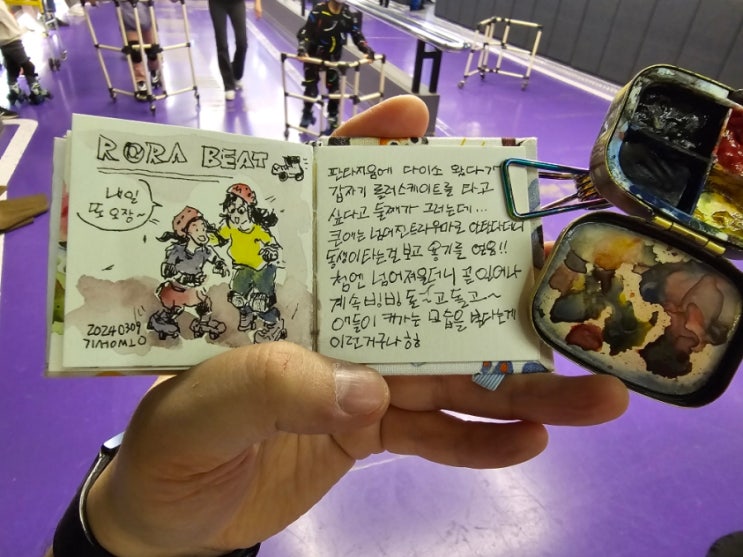 RORA BEAT
내일
또 오장~
20240309
OTWOHWIJ
판타지움에 다이소 왔다가
갑자기 롤러스케이트를 타고
싶다고 둘째가 그러는데...
큰애는 넘어진 트라우마로 안탄다더니
동생이 타는걸 보고 용기를 얻음!!
첨엔 넘어져울더니 곧 일어나
계속 빙빙 돌~고 돌고~
애들이 커가는 모습을 본다는게
이런거구나 ㅎㅎ